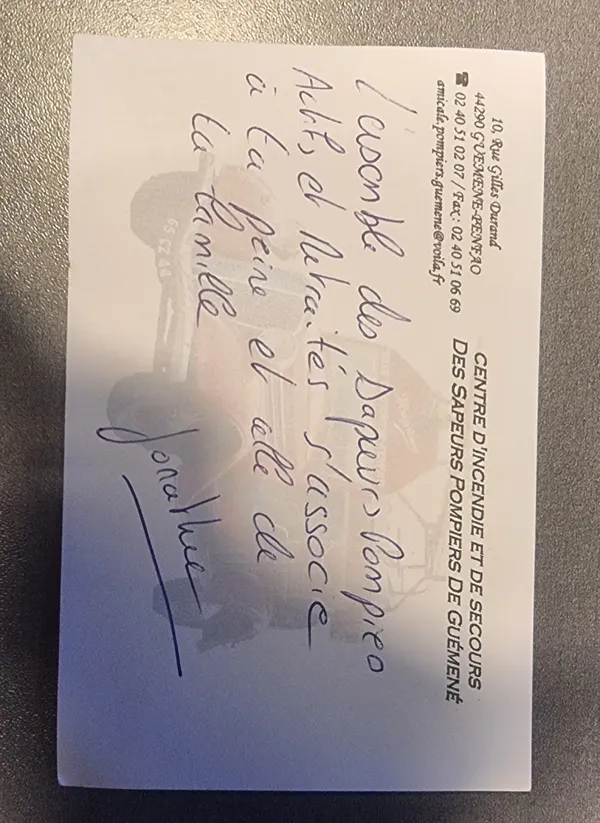 CENTRE D'INCENDIE ET DE SECOURS
DES SAPEURS POMPIERS DE GUÉMENÉ
10, Rue Gilles Durand
44290 GUEMENE-PENFAO
☎ 02 40 51 02 07 / Fax : 02 40 51 06 69
amicale.pompiers.guemene@voila.fr
L'ensemble des Sapeurs Pompiers
Actifs et Retraités s'associe
à ta peine et celle de
ta famille
Jonathan